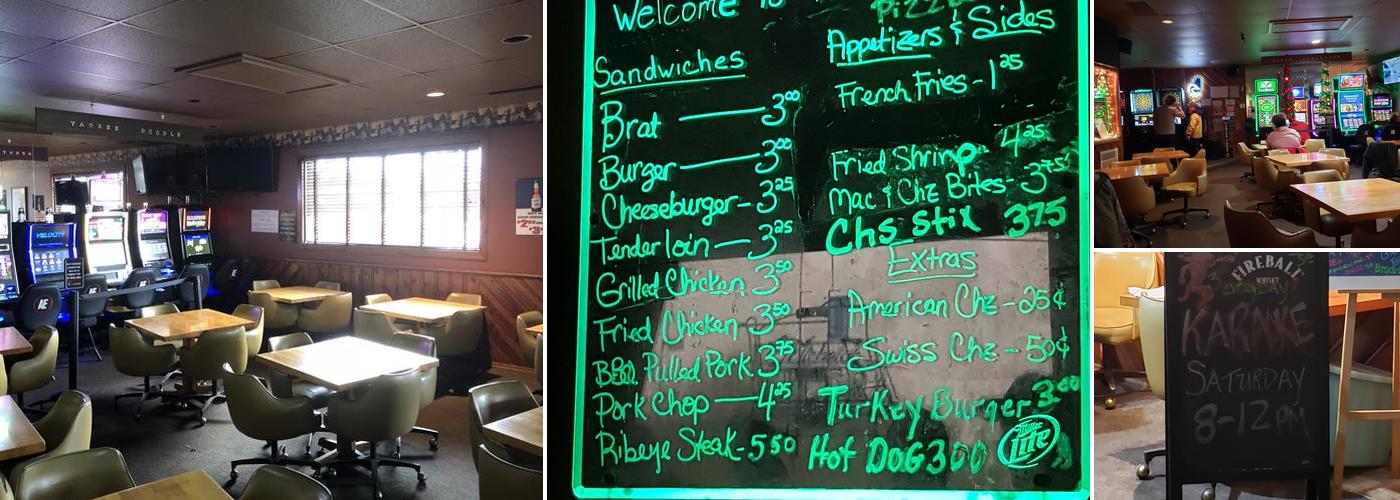 YANKEE DOODLE
VELOCITY
Welcome To
Sandwiches
Brat — 3.00
Burger — 3.00
Cheeseburger - 3.25
Tenderloin — 3.25
Grilled Chicken 3.50
Fried Chicken 3.50
BBQ Pulled Pork 3.75
Pork Chop — 4.25
Ribeye Steak - 5.50
Pizza
Appetizers & Sides
French Fries - 1.25
Fried Shrimp - 4.25
Mac & Chz Bites - 3.75
Chs Stix 3.75
Extras
American Chz - 25¢
Swiss Chz - 50¢
Turkey Burger 3.00
Hot DOG 3.00
Miller
Lite
FIREBALL
WHISKY
KARAOKE
SATURDAY
8-12PM